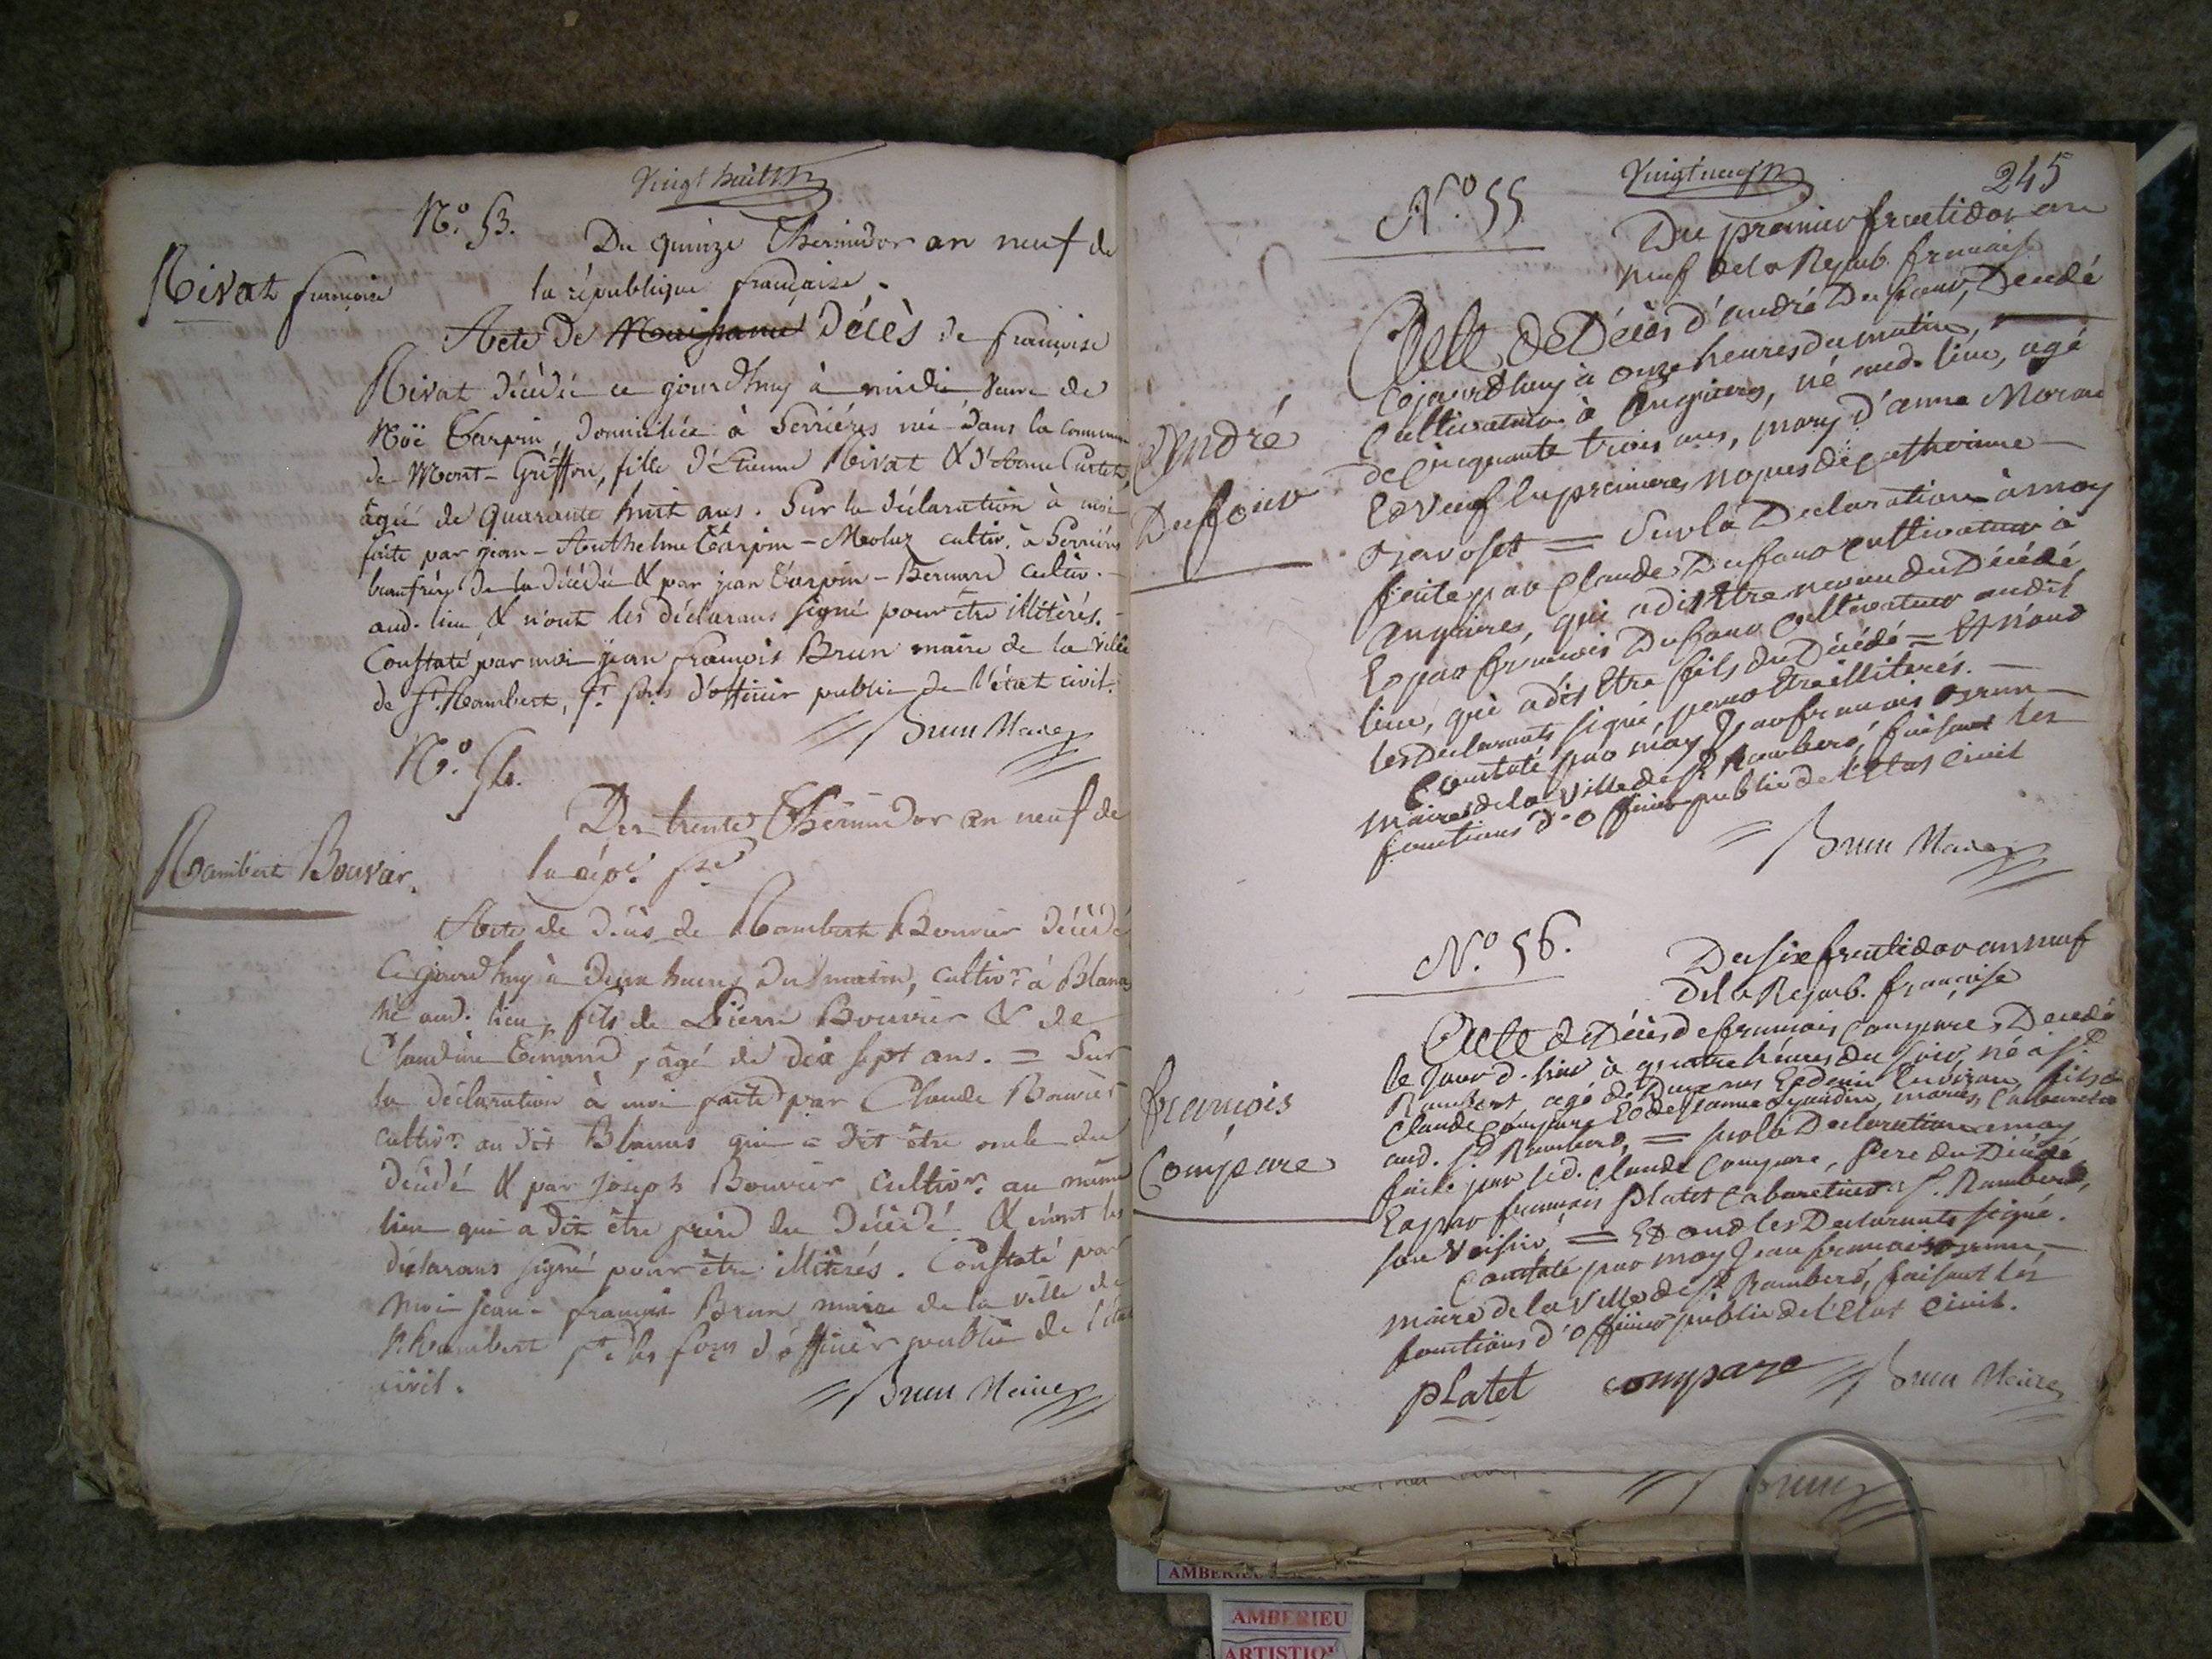 Vingt huit
N.º 53.
Du quinze Thermidor an neuf de
la république française.
Rivat françoise
Acte de Naissance Décès de françoise
Rivat décédée ce jourd'huy à midi, Veuve de
Noë Tarpin, domiciliée à Serrières née dans la commune
de Mont-Griffon, fille d'Etienne Rivat & d'Anne Curtet,
âgée de quarante huit ans. Sur la déclaration à moi
faite par jean-Anthelme Tarpin-Moluz cultiv. à Serrières
beaufrère de la décédée & par jean Tarpin-Bernard cultiv.
aud. lieu, & n'ont les déclarans signé pour être illitèrés.
Constaté par moi jean françois Brun maire de la ville
de St. Rambert, f.t fons d'officier public de l'état civil.
Brun Maire
N.º 54.
Du trente Thermidor an neuf de
la rép.e f.se
Rambert Bouvier.
Acte de décès de Rambert Bouvier décédé
ce jourd'huy à deux heures du matin, cultiv.r à Blanas
né aud. lieu, fils de Pierre Bouvier & de
Claudine Ténand, âgé de dix sept ans. = Sur
la déclaration à moi faite par Claude Bouvier
cultiv.r au dit Blanas qui a dit être oncle du
décédé & par joseph Bouvier cultiv.r au même
lieu qui a dit être frère du décédé & n'ont les
déclarans signé pour être illitèrés. Constaté par
moi jean-françois Brun maire de la ville de
St. Rambert f.t les fons d'officier public de l'état
civil.
Brun Maire
Vingt neuf
245
N.º 55
Du premier fructidor an
neuf de la Repub. francaise
André
Duffour
Acte de Décès d'andré Dufour, Decedé
Cejourdhuy à onze heures du matin,
Cultivateur à Angrieres, né aud. lieu, agé
de Cinquante trois ans, mary d'anne Morand
Et Veuf en premieres nopces de Catherine
Sur la Declaration à moy
faite par Claude Dufour cultivateur à
Angrieres, qui a dit Etre neveu du Décédé
Et par francois Dufour Cultivateur audit
lieu, qui a dit Etre fils du Décédé = Et n'ont
les Declarants signé, pour Etre illiterés.
Constaté par moy Jean francois Brun
maire de la Ville de St. Rambert, faisant les
fonctions d'officier public de l'Etat Civil
Brun Maire
N.º 56.
Du six fructidor an neuf
de la Repub. française
françois
Compare
Acte de Décès de francois Compare, Decedé
le Jour d. hier à quatre heures du soir, né à St.
Rambert agé de Deux ans Et demi Environ, fils de
Claude Compare Et de Jeanne mariés, Cabaretier
aud. St. Rambert, = sur la Declaration a moy
faite par led. Claude Compare, Pere du Décédé
Et par francois Platet Cabaretier à St. Rambert,
son Voisin = Et ont les Declarants signé.
Constaté par moy Jean francois Brun,
maire de la Ville de St. Rambert, faisant les
fonctions d'officier public de l'Etat Civil.
platet compare Brun Maire
Brun
AMBERIEU
AMBERIEU
ARTISTIQU